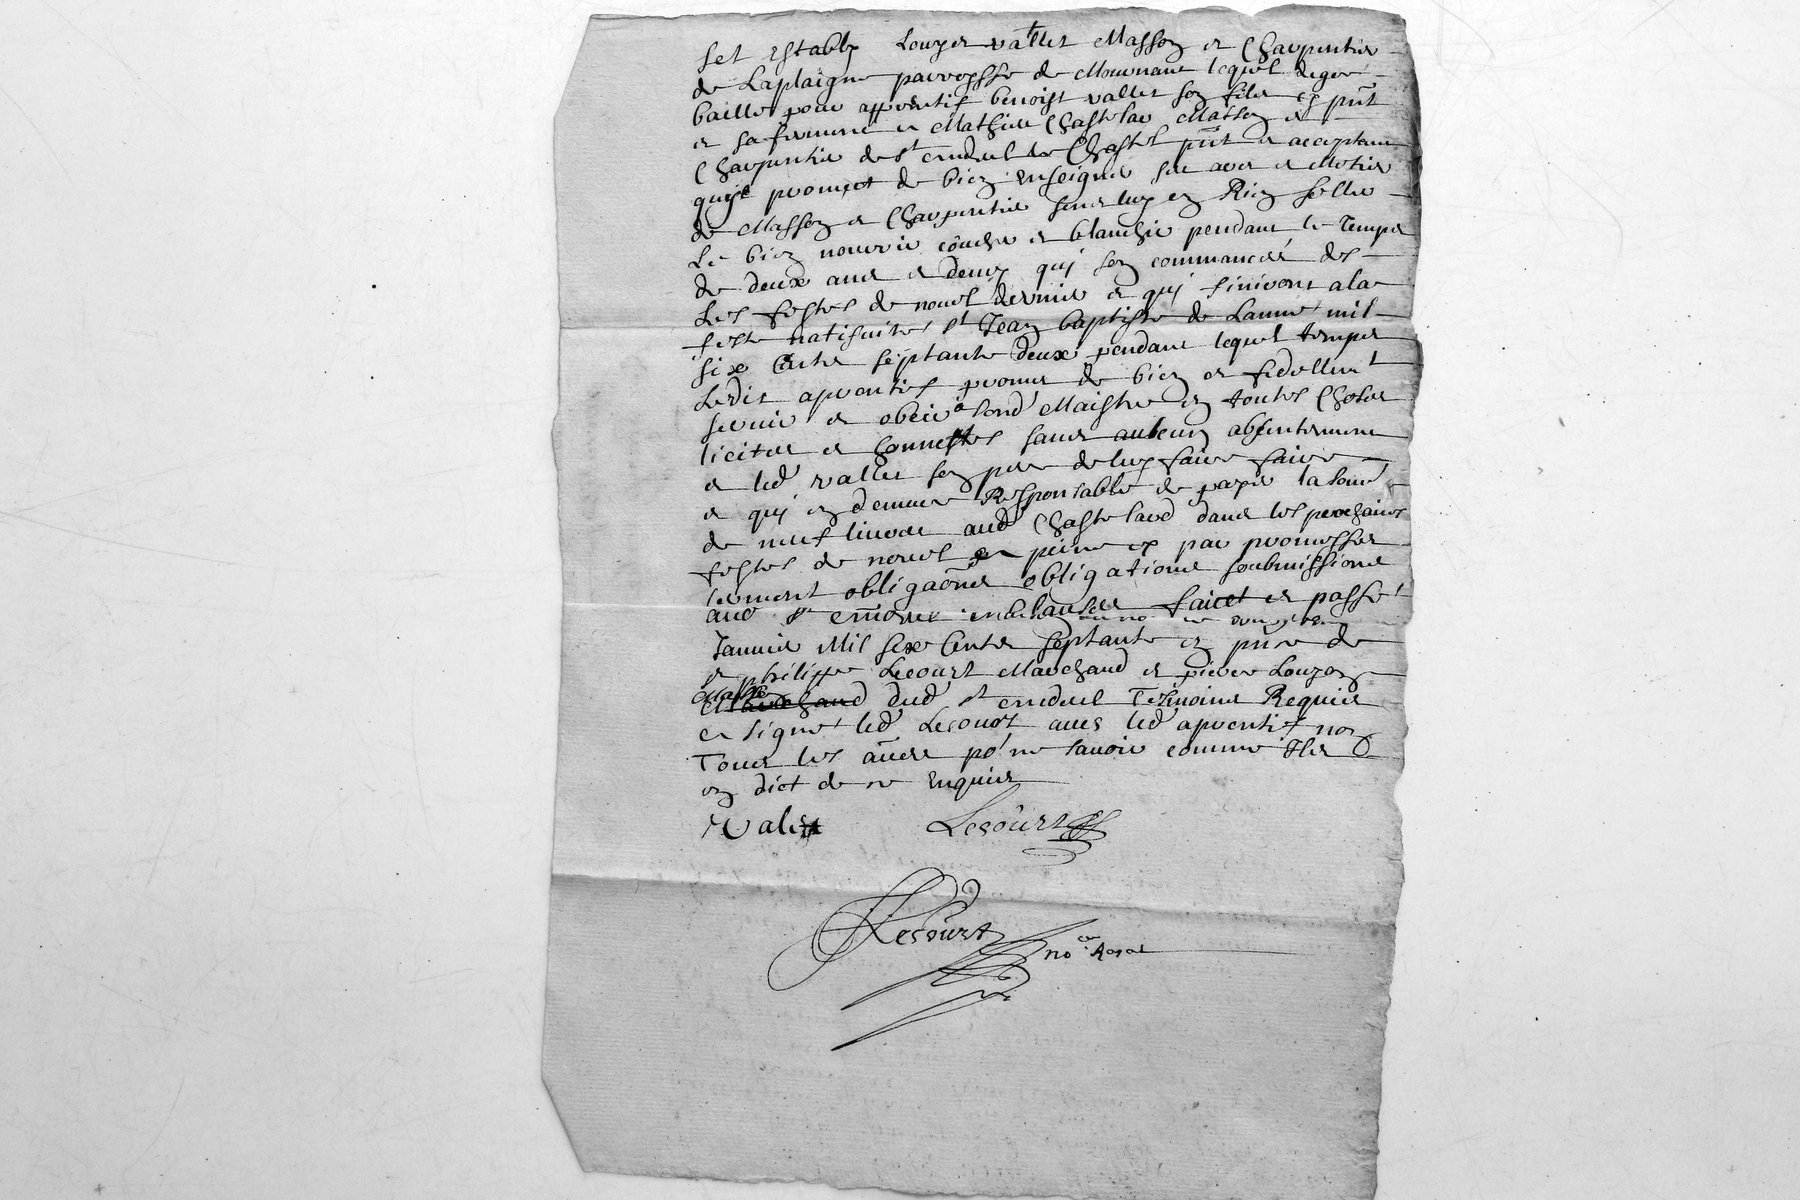 Set estably Louys vallet Masson et Charpentier
de Laplaigne parroesse de Mournant lequel de gre
baille pour apprentif benoist vallet son filz cy pnt
et sa femme a Mathieu Chastelar Masson et
Charpentier de st enduel le Chastel pnt et acceptant
quil promet de bien enseigner son art et Metier
de Masson et Charpentier sans luy en Rien seller
Le bien nourrir coucher et blanchir pendant le Temps
de deux ans et demy qui son commancés des
Les festes de nouel dernier et qui finiront a la
feste natifuité st Jean baptiste de Lanne mil
six Cents septante deux pendant lequel temps
Ledit aprentif promet de bien et fidellemt
seruir et obeir a sond Maistre en toutes Choses
licites et honnestes sans aulcun absentement
et led vallet son pere de luy faire faire
et qui en demeure Responsable de payer la some
de neuf liures aud Chastelard dans les prochaines
festes de nouel a peine et par promesses
serment obligaons obligations soubmissions
aud et clauses faict et passé
Januier Mil six Cents septante en pnce de
sr philippe Lecourt Marchand et pierre Louzon
Masson dud st enduel Tesmoins Requis
et signé led Lecourt auec led aprentif non
Tous les autres po ne sauoir comme Ils
on dict de ce enquis
Valet Lecourt
Lecourt
nore Royal